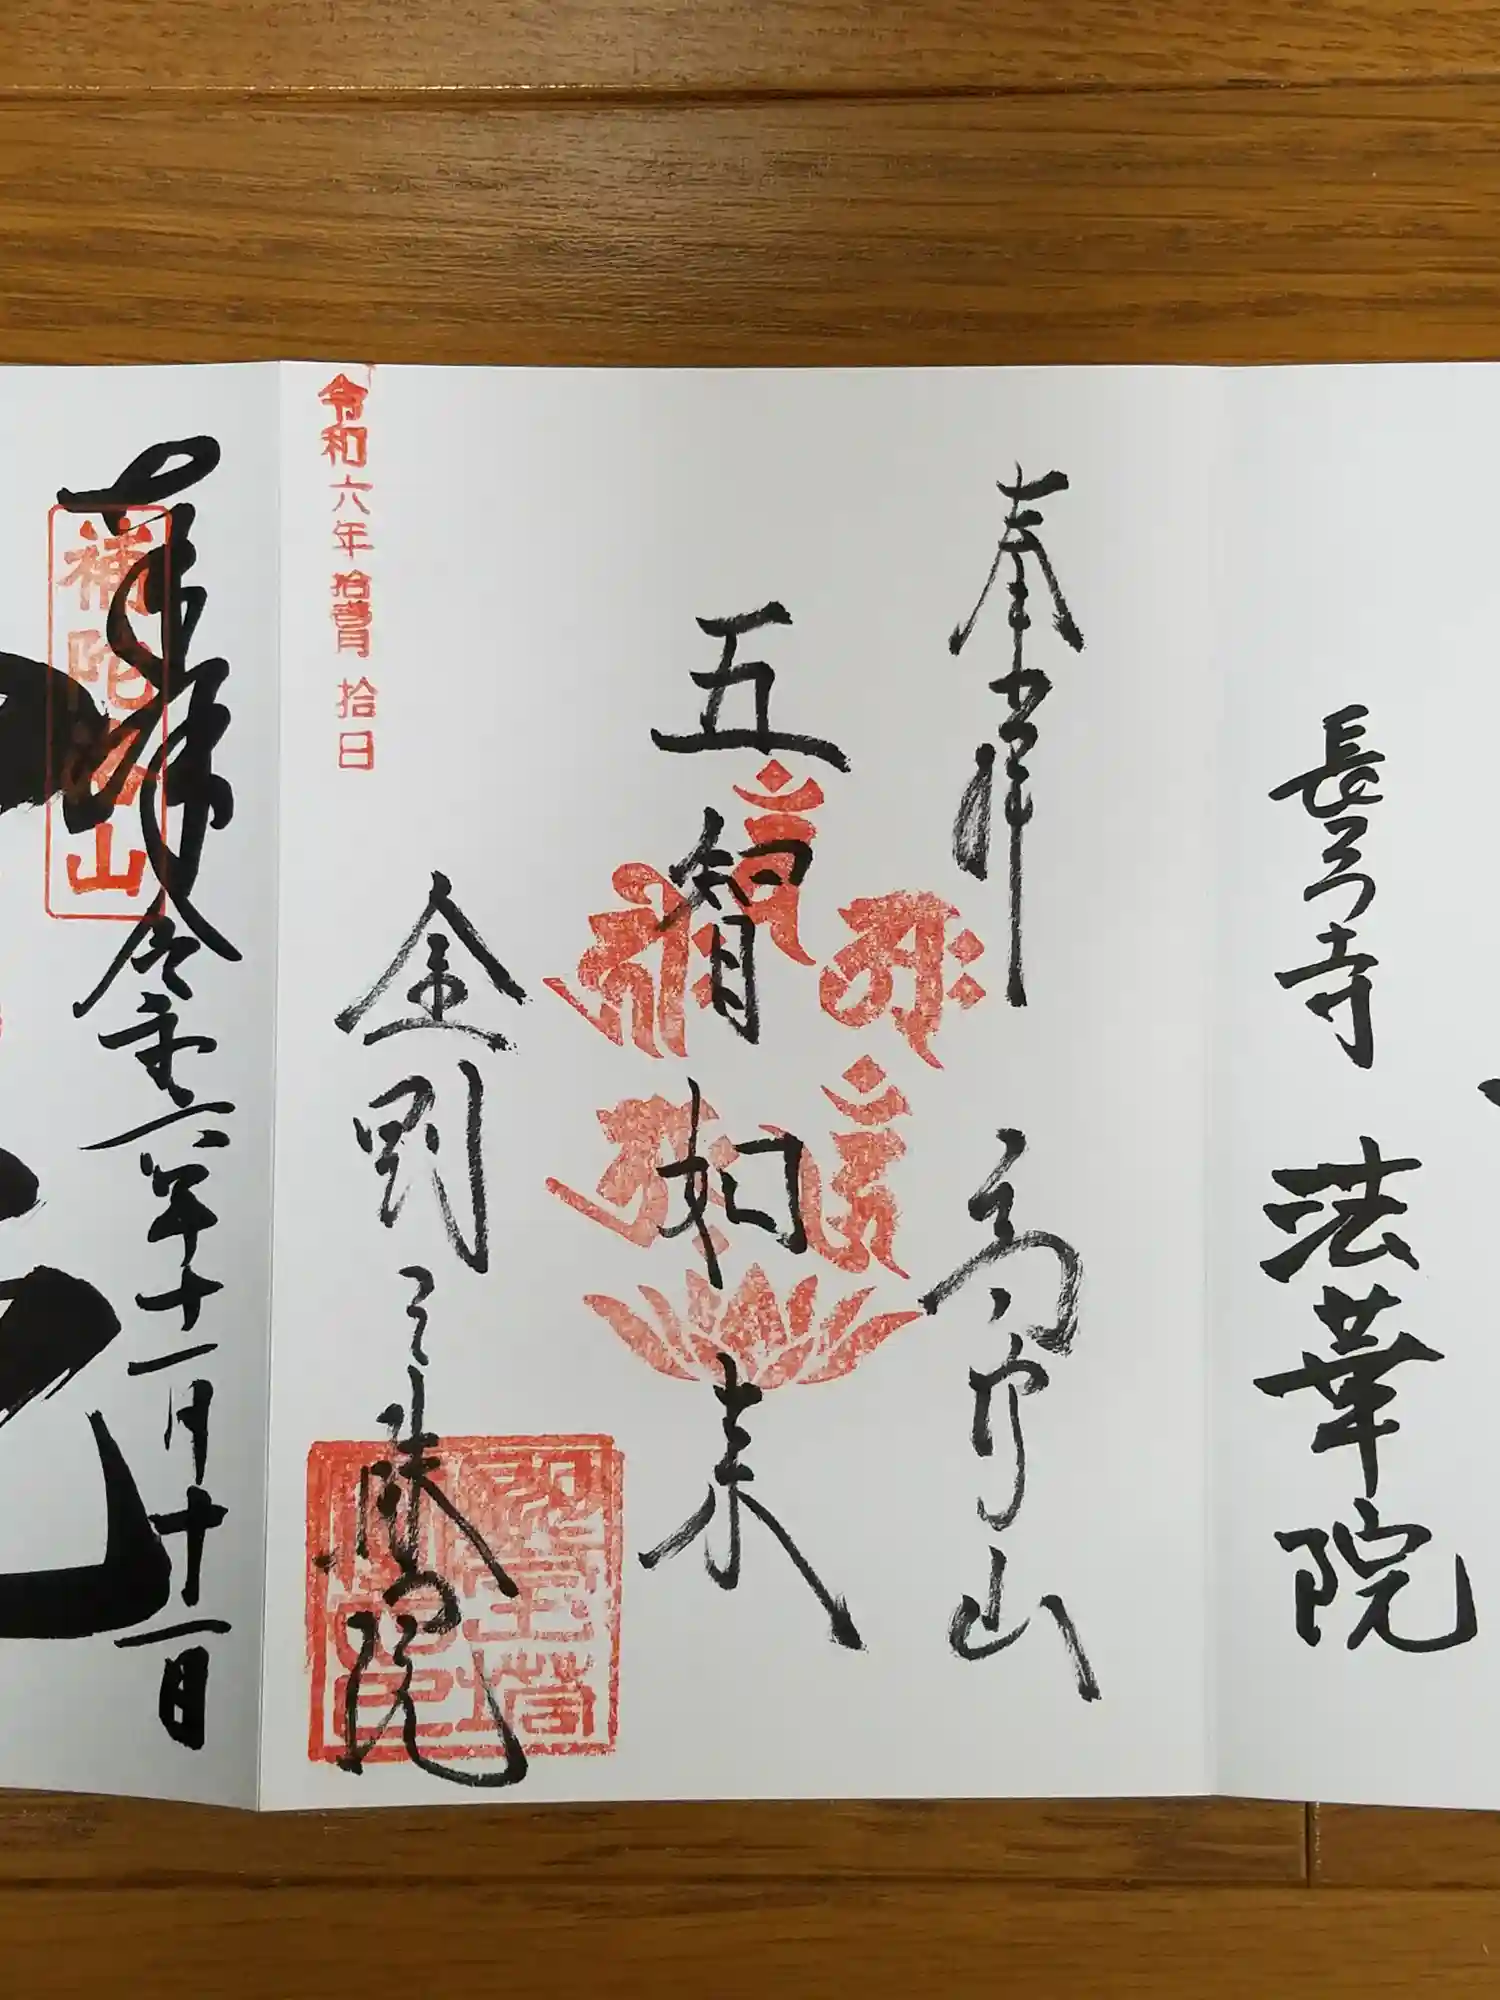 長弓寺 法華院
奉拝 高野山
五智如来
金剛三昧院
令和六年拾壹月 拾日
奉拝 令和六年十一月十一日
補陀洛山